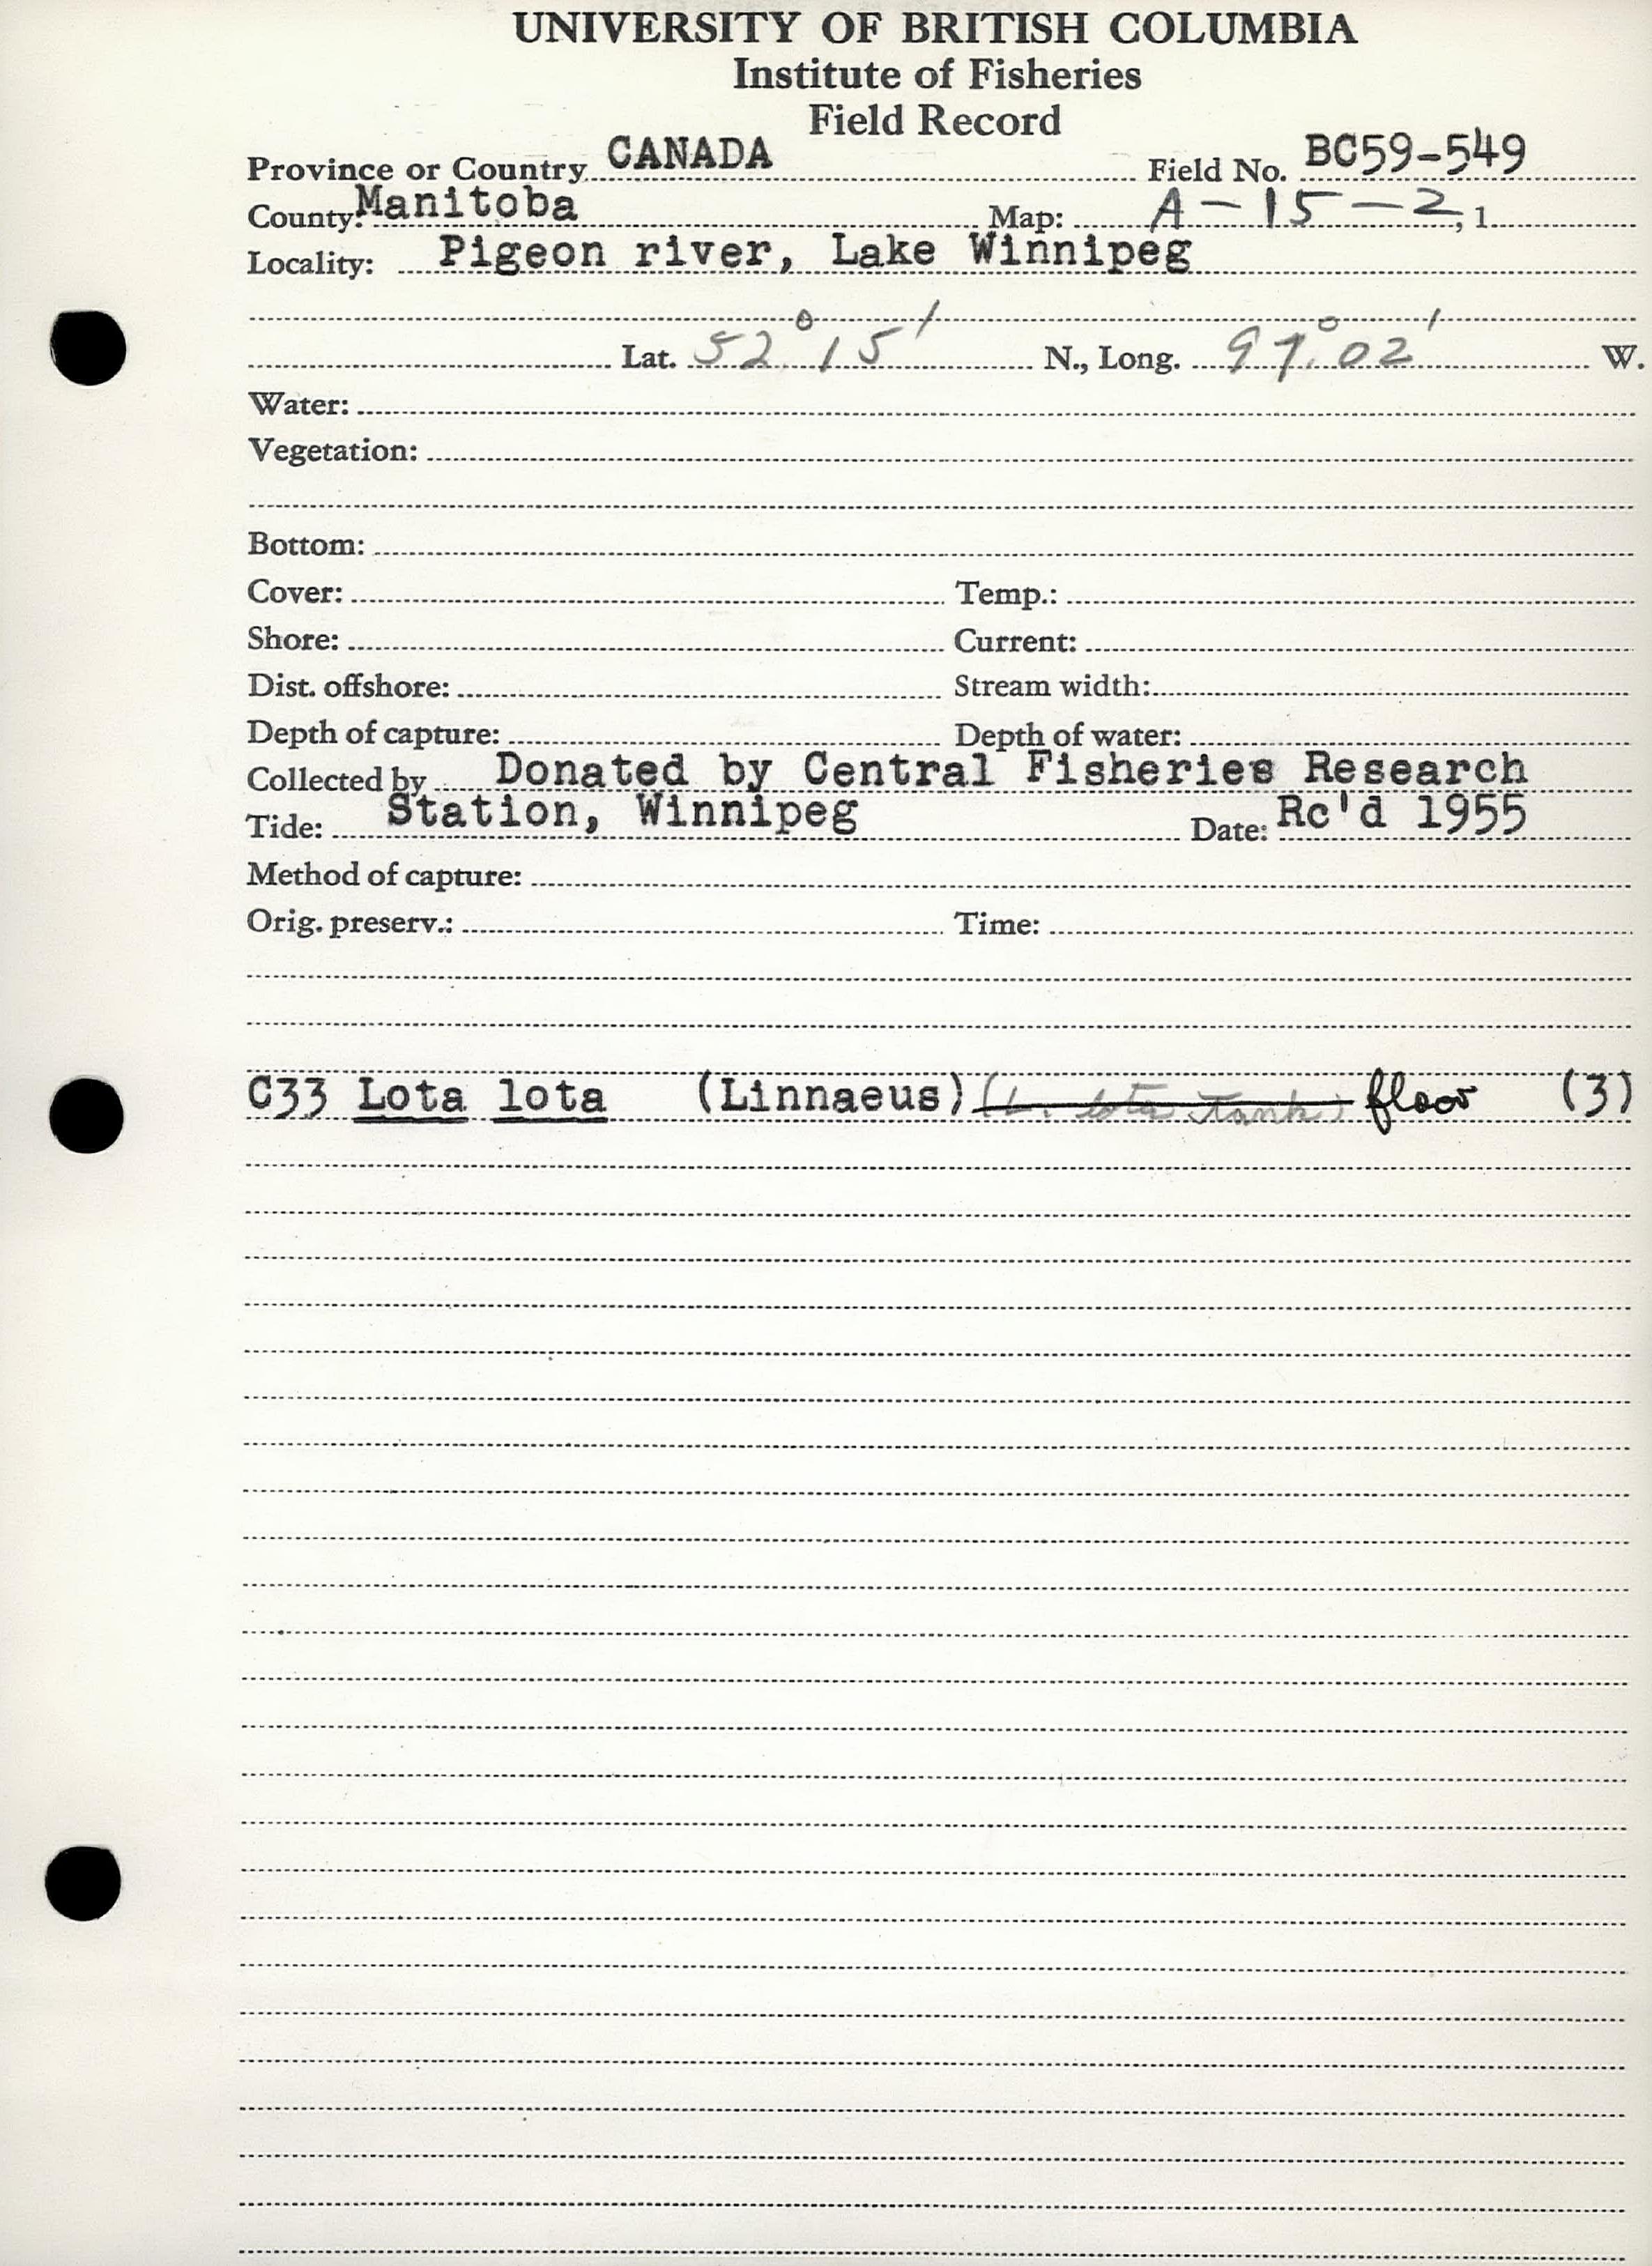 UNIVERSITY OF BRITISH COLUMBIA
Institute of Fisheries
Field Record
Province or Country CANADA Field No. BC59-549
County: Manitoba Map: A-15-2, 1
Locality: Pigeon river, Lake Winnipeg
Lat. 52° 15' N., Long. 97° 02' W.
Water:
Vegetation:
Bottom:
Cover: Temp.:
Shore: Current:
Dist. offshore: Stream width:
Depth of capture: Depth of water:
Collected by Donated by Central Fisheries Research
Tide: Station, Winnipeg Date: Rc'd 1955
Method of capture:
Orig. preserv.: Time:
C33 Lota lota (Linnaeus) (L. lota tank) floor (3)